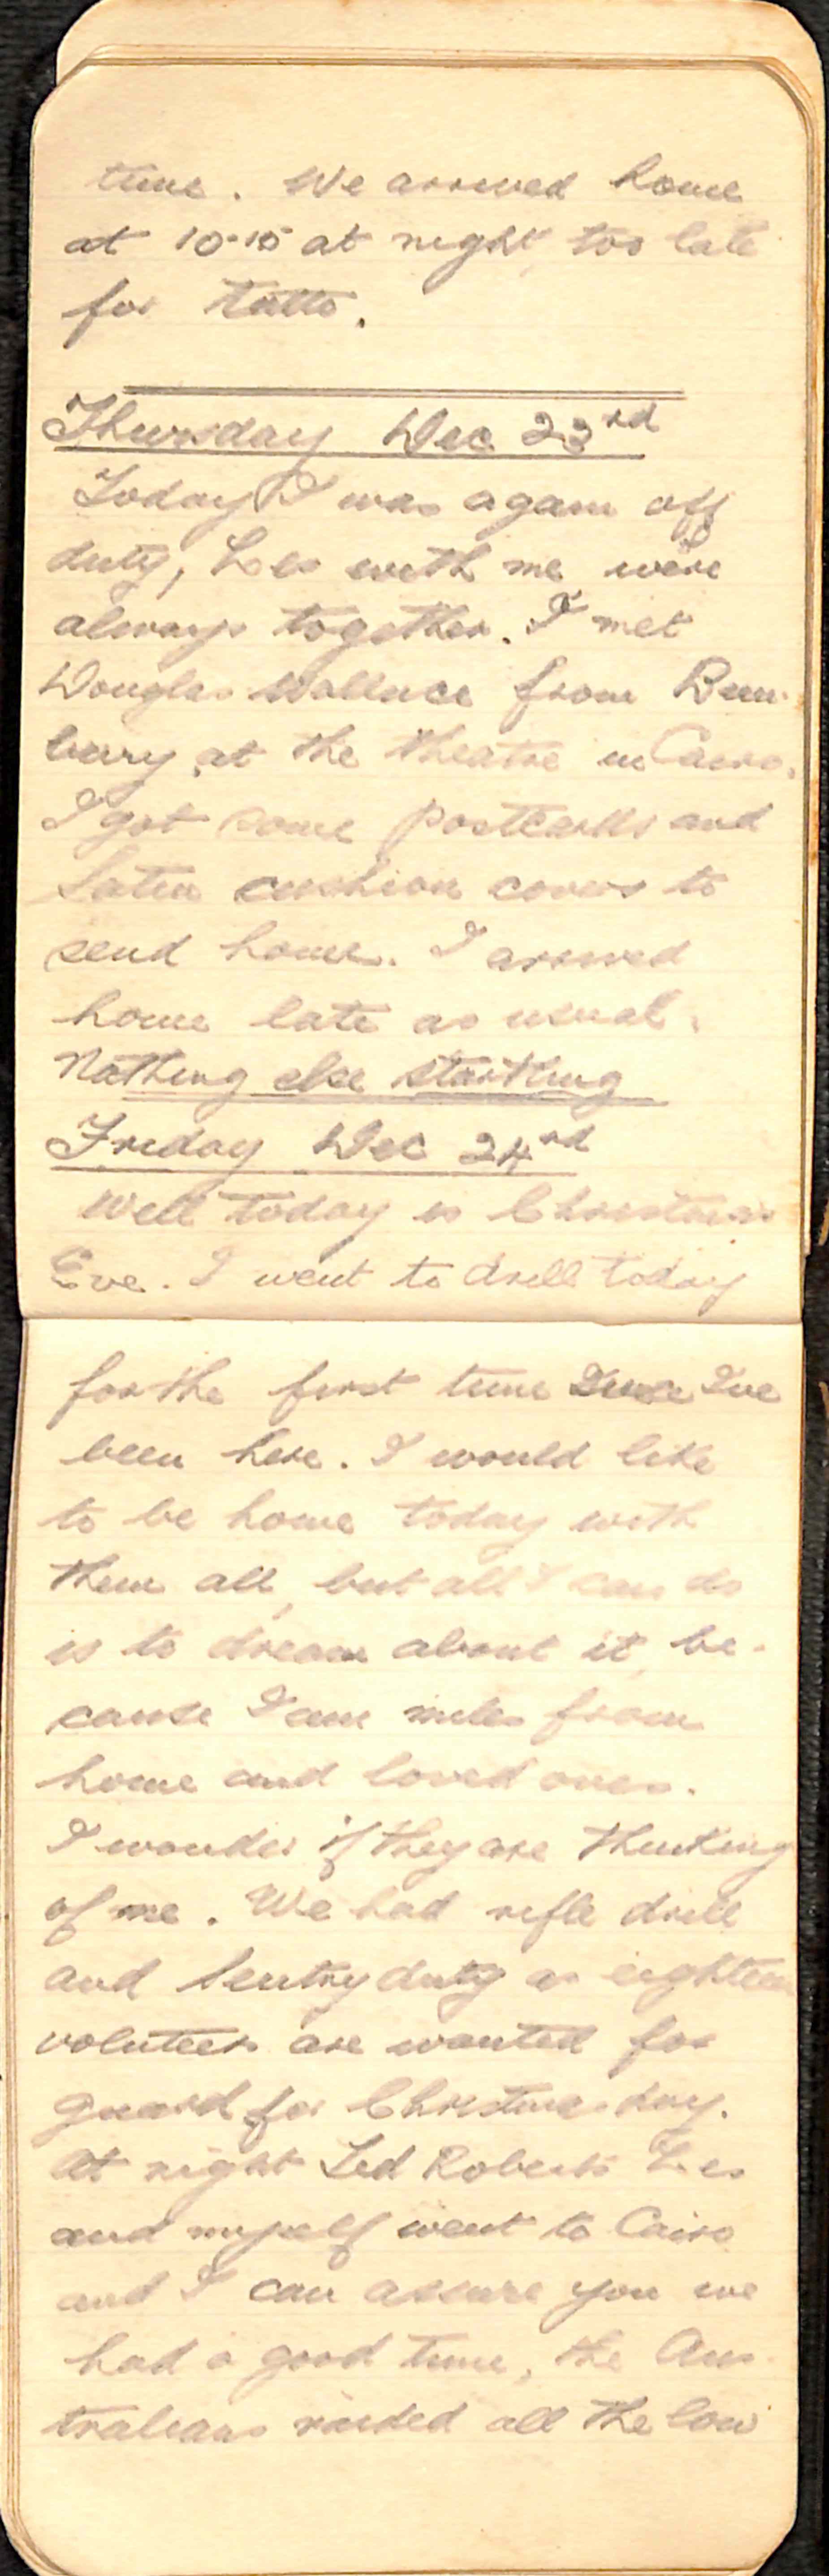 time. We arrived home
at 10-15 at night, too late
for tatto.
Thursday Dec 23rd
Today I was again off
duty, Les with me were
always together. I met
Douglas Wallace from Bun-
bury, at the theatre in Cairo.
I got some postcards and
Satin cushion covers to
send home. I arrived
home late as usual.
Nothing else startling
Friday Dec 24rd
Well today is Christmas
Eve. I went to drill today
for the first time Since I've
been here. I would like
to be home today with
them all, but all I can do
is to dream about it, be-
cause I am miles from
home and loved ones.
I wonder if they are thinking
of me. We had rifle drill
and Sentry duty as eighteen
voluteers are wanted for
guard for Christmas day.
At night Ted Roberts Les
and myself went to Cairo
and I can assure you we
had a good time, the Aus-
tralians raided all the low